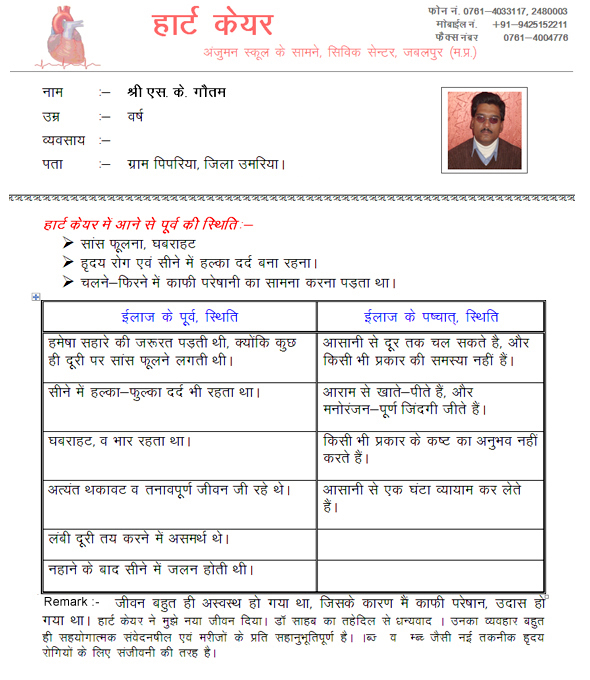 हार्ट केयर
अंजुमन स्कूल के सामने, सिविक सेन्टर, जबलपुर (म.प्र.)
फोन नं. 0761–4033117, 2480003
मोबाईल नं. +91–9425152211
फैक्स नंबर 0761–4004776
नाम :– श्री एस. के. गौतम
उम्र :– वर्ष
व्यवसाय :–
पता :– ग्राम पिपरिया, जिला उमरिया।
हार्ट केयर में आने से पूर्व की स्थिति:–
➢ सांस फूलना, घबराहट
➢ हृदय रोग एवं सीने में हल्का दर्द बना रहना।
➢ चलने–फिरने में काफी परेषानी का सामना करना पड़ता था।
ईलाज के पूर्व, स्थिति
ईलाज के पष्चात्, स्थिति
हमेषा सहारे की जरूरत पड़ती थी, क्योंकि कुछ
ही दूरी पर सांस फूलने लगती थी।
आसानी से दूर तक चल सकते है, और
किसी भी प्रकार की समस्या नहीं हैं।
सीने में हल्का–फुल्का दर्द भी रहता था।
आराम से खाते–पीते हैं, और
मनोरंजन–पूर्ण जिंदगी जीते हैं।
घबराहट, व भार रहता था।
किसी भी प्रकार के कष्ट का अनुभव नहीं
करते हैं।
अत्यंत थकावट व तनावपूर्ण जीवन जी रहे थे।
आसानी से एक घंटा व्यायाम कर लेते
हैं।
लंबी दूरी तय करने में असमर्थ थे।
नहाने के बाद सीने में जलन होती थी।
Remark :- जीवन बहुत ही अस्वस्थ हो गया था, जिसके कारण मैं काफी परेषान, उदास हो
गया था। हार्ट केयर ने मुझे नया जीवन दिया। डॉ साहब का तहेदिल से धन्यवाद । उनका व्यवहार बहुत
ही सहयोगात्मक संवेदनषील एवं मरीजों के प्रति सहानुभूतिपूर्ण है। व जैसी नई तकनीक हृदय
रोगियों के लिए संजीवनी की तरह है।